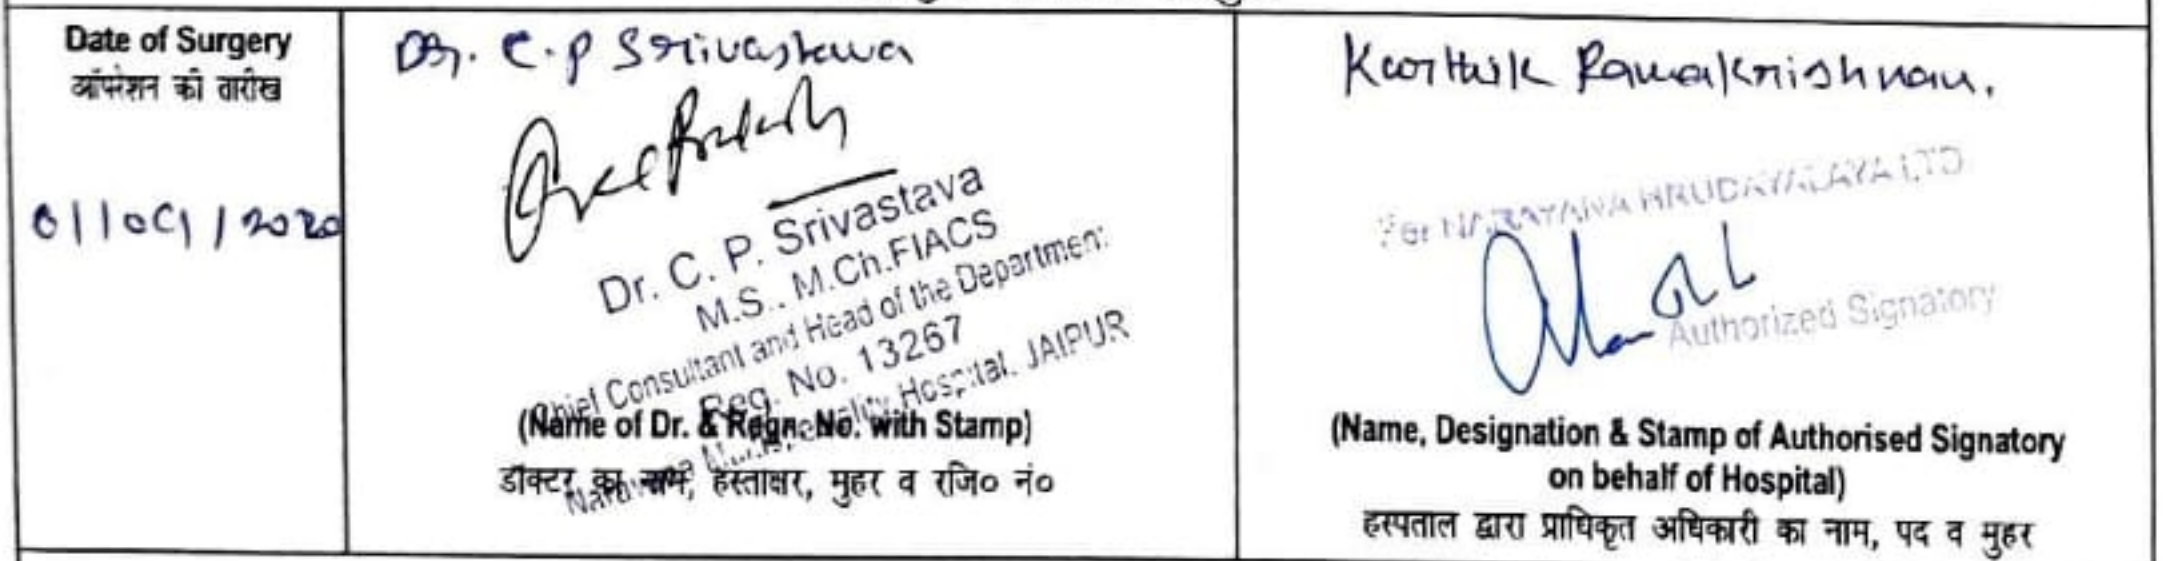 Date of Surgery
ऑपरेशन की तारीख
01/09/2020
Dr. C.P Srivastava
Dr. C. P. Srivastava
M.S., M.Ch.FIACS
Chief Consultant and Head of the Department
Reg. No. 13267
Hospital, JAIPUR
(Name of Dr. & Regn. No. with Stamp)
डॉक्टर का नाम, हस्ताक्षर, मुहर व रजि० नं०
Karthik Ramakrishnan.
For NARAYANA HRUDAYALAYA LTD
Authorized Signatory
(Name, Designation & Stamp of Authorised Signatory
on behalf of Hospital)
हस्पताल द्वारा प्राधिकृत अधिकारी का नाम, पद व मुहर